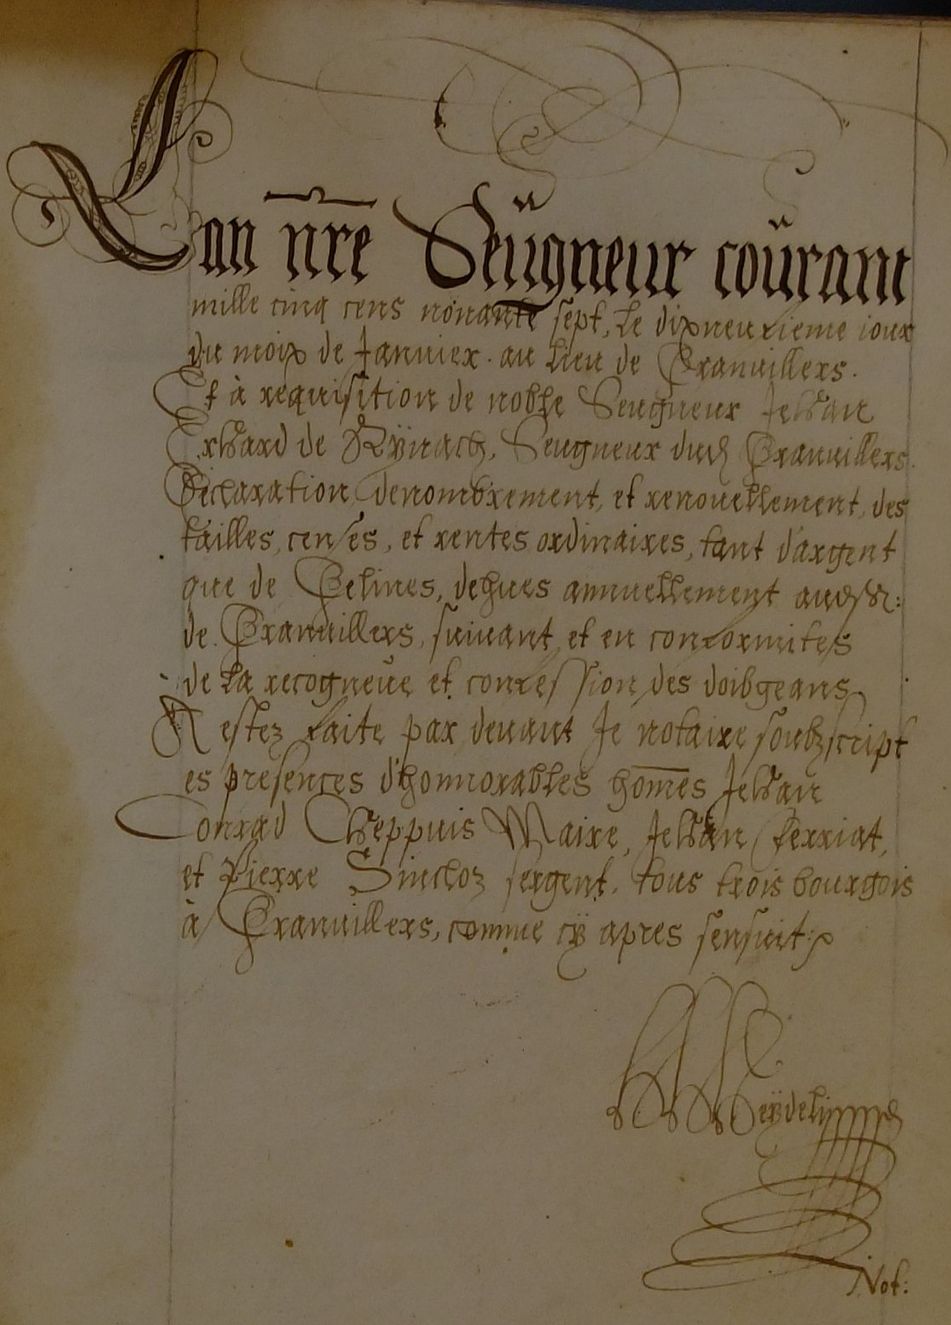 Lan nre Seŭgneur coŭrant
mille cinq cens nonante sept, le dixneufieme iour
du moix de Januier . au lieu de Granuillers .
Et à requisition de noble Seugneur Jehan
Erhard de Rÿnach, Seugneur dud Granuillers.
Declaration, denombrement, et renouellement, des
tailles, censes, et rentes ordinaires, tant d'argent
que de Gelines, dehues annuellement aud Sr:
de Granuillers, suiuant et en conformites
de la recogneue et confession des
Restez faite par deuant Je notaire soubzscript
es presences d'honnorables homes Jehan
Conrad Cheppuis Maire, Jehan Ferriat,
et Pierre sergent, tous trois bourgois
à Granuillers, comme cÿ apres sensuit:
Not: